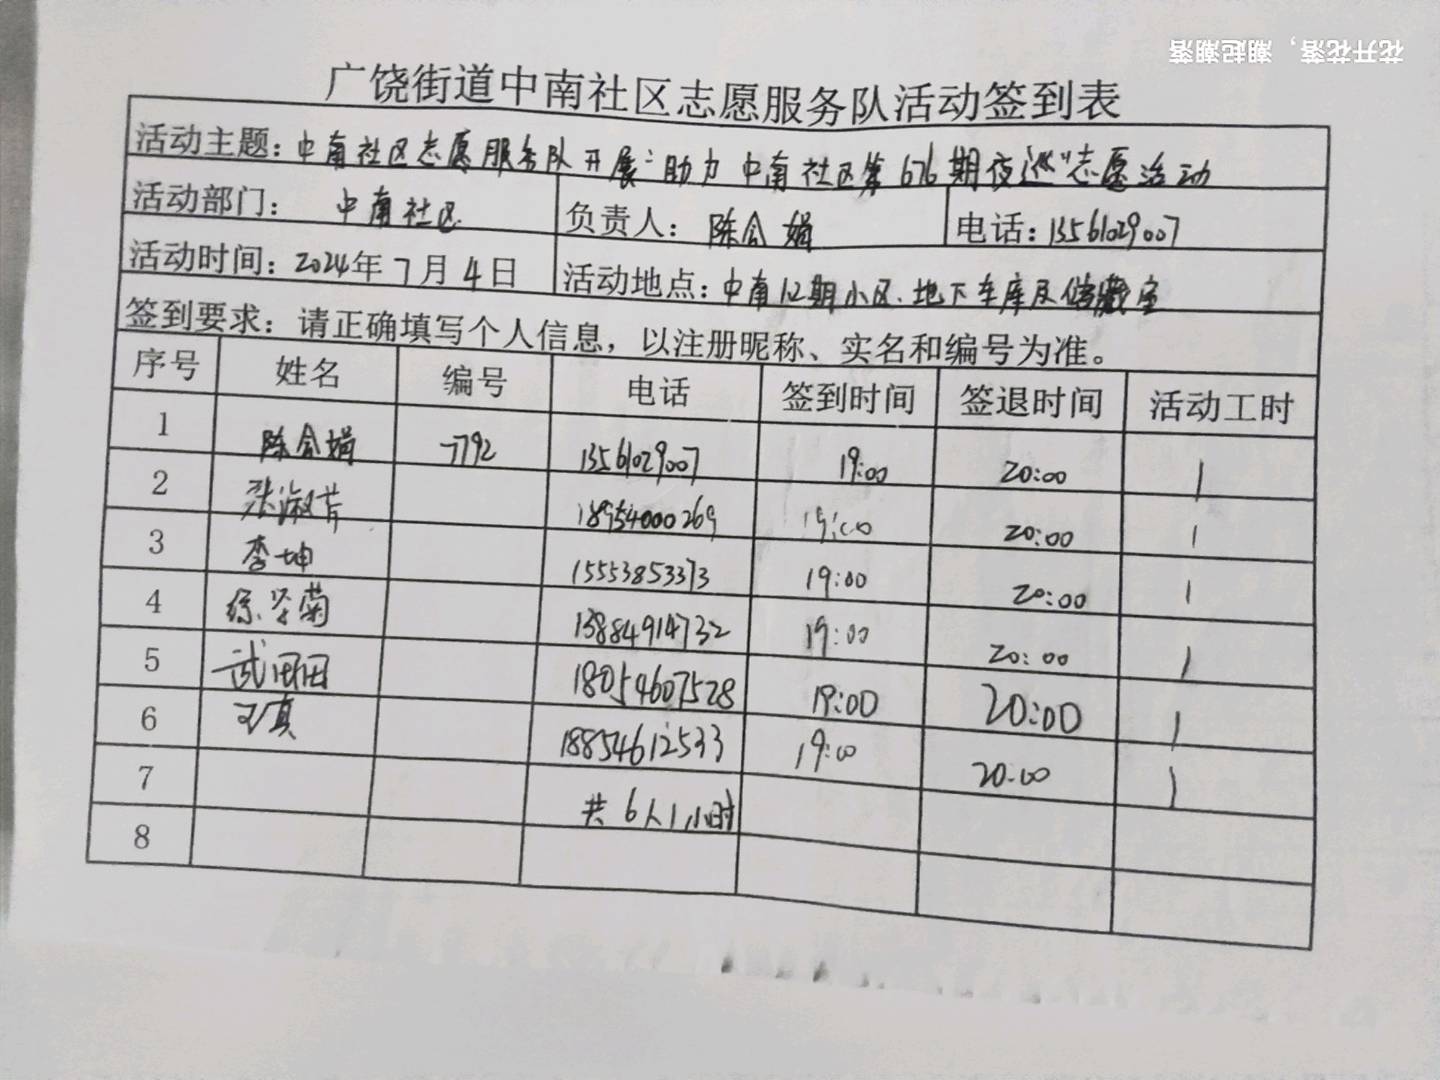 花开花落，潮起潮落
广饶街道中南社区志愿服务队活动签到表
活动主题：中南社区志愿服务队开展"助力中南社区第676期夜巡"志愿活动
活动部门： 中南社区 负责人：陈会娟 电话：13561029007
活动时间：2024年7月4日 活动地点：中南12期小区、地下车库及储藏室
签到要求：请正确填写个人信息，以注册昵称、实名和编号为准。
序号 姓名 编号 电话 签到时间 签退时间 活动工时
1 陈会娟 -7792 13561029007 19:00 20:00 1
2 张淑芹 18954000269 19:00 20:00 1
3 李坤 15553853373 19:00 20:00 1
4 徐 菊 13884914732 19:00 20:00 1
5 武田田 18054607528 19:00 20:00 1
6 王真 18854612533 19:00 20:00 1
7 共6人1小时
8